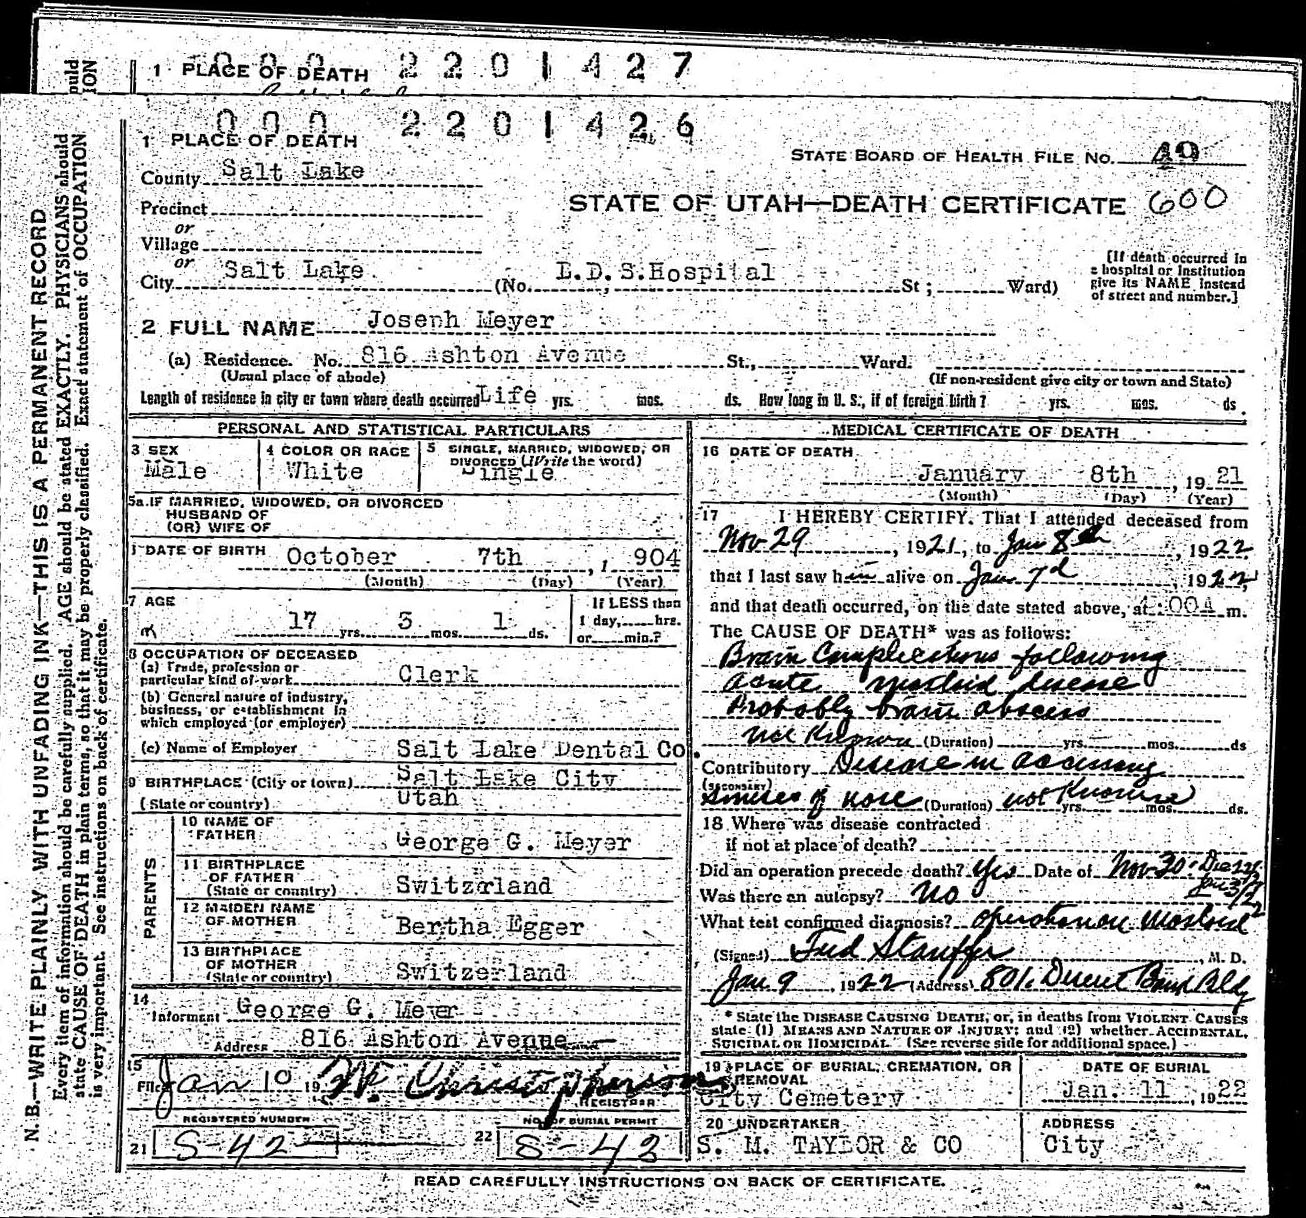 1 PLACE OF DEATH 000 2201427
000 2201426
1 PLACE OF DEATH
STATE BOARD OF HEALTH FILE NO. 49
County Salt Lake
STATE OF UTAH—DEATH CERTIFICATE 600
Precinct
or
Village
or
City Salt Lake (No. L.D.S.Hospital St; Ward)
[If death occurred in
a hospital or institution
give its NAME instead
of street and number.]
2 FULL NAME Joseph Meyer
(a) Residence. No. 816 Ashton Avenue St., Ward.
(Usual place of abode) (If non-resident give city or town and State)
Length of residence in city or town where death occurred Life yrs. mos. ds. How long in U. S., if of foreign birth? yrs. mos. ds.
PERSONAL AND STATISTICAL PARTICULARS
3 SEX Male
4 COLOR OR RACE White
5 SINGLE, MARRIED, WIDOWED, OR
DIVORCED (Write the word)
Single
5a. IF MARRIED, WIDOWED, OR DIVORCED
HUSBAND OF
(OR) WIFE OF
DATE OF BIRTH October 7th, 1 904
(Month) (Day) (Year)
7 AGE
17 yrs. 3 mos. 1 ds.
If LESS than
1 day, hrs.
or min.?
8 OCCUPATION OF DECEASED
(a) Trade, profession or
particular kind of work Clerk
(b) General nature of industry,
business, or establishment in
which employed (or employer)
(c) Name of Employer Salt Lake Dental Co.
9 BIRTHPLACE (City or town) Salt Lake City
(State or country) Utah
PARENTS
10 NAME OF
FATHER George G. Meyer
11 BIRTHPLACE
OF FATHER
(State or country) Switzerland
12 MAIDEN NAME
OF MOTHER Bertha Egger
13 BIRTHPLACE
OF MOTHER
(State or country) Switzerland
14
Informant George G. Meyer
Address 816 Ashton Avenue
15
Filed Jan 10 19 W. Christopherson
REGISTRAR
REGISTERED NUMBER
21 S-42
NO. OF BURIAL PERMIT
22 S-43
MEDICAL CERTIFICATE OF DEATH
16 DATE OF DEATH
January 8th, 19 21
(Month) (Day) (Year)
17 I HEREBY CERTIFY, That I attended deceased from
Nov 29, 1921, to Jan 8th, 1922
that I last saw him alive on Jan 7d, 1922,
and that death occurred, on the date stated above, at :00A m.
The CAUSE OF DEATH* was as follows:
Brain Complications following
acute mastoid disease
Probably brain abscess
not Known (Duration) yrs. mos. ds
Contributory Disease in accessory
(SECONDARY)
sinuses of nose (Duration) not Known yrs. mos. ds.
18 Where was disease contracted
if not at place of death?
Did an operation precede death? Yes Date of Nov 30
Was there an autopsy? No
What test confirmed diagnosis? operation on Mastoid
(Signed) Fred Stauffer, M. D.
Jan 9, 1922 (Address) 801 Deseret Bank Bldg
* State the DISEASE CAUSING DEATH, or, in deaths from VIOLENT CAUSES
state (1) MEANS AND NATURE OF INJURY; and (2) whether ACCIDENTAL,
SUICIDAL OR HOMICIDAL. (See reverse side for additional space.)
19 PLACE OF BURIAL, CREMATION, OR
REMOVAL
City Cemetery
DATE OF BURIAL
Jan. 11, 1922
20 UNDERTAKER
S. M. TAYLOR & CO
ADDRESS
City
READ CAREFULLY INSTRUCTIONS ON BACK OF CERTIFICATE.
N. B.—WRITE PLAINLY WITH UNFADING INK—THIS IS A PERMANENT RECORD
Every item of information should be carefully supplied. AGE should be stated EXACTLY. PHYSICIANS should
state CAUSE OF DEATH in plain terms, so that it may be properly classified. Exact statement of OCCUPATION
is very important. See instructions on back of certificate.
ould
ION